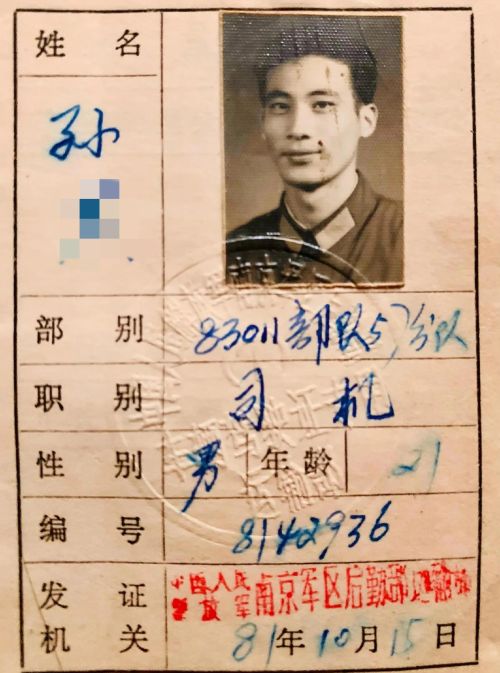 姓名
孙
部别 83011部队57分队
职别 司机
性别 男 年龄 21
编号 8142936
发证机关 中国人民解放军南京军区后勤部
81年10月15日